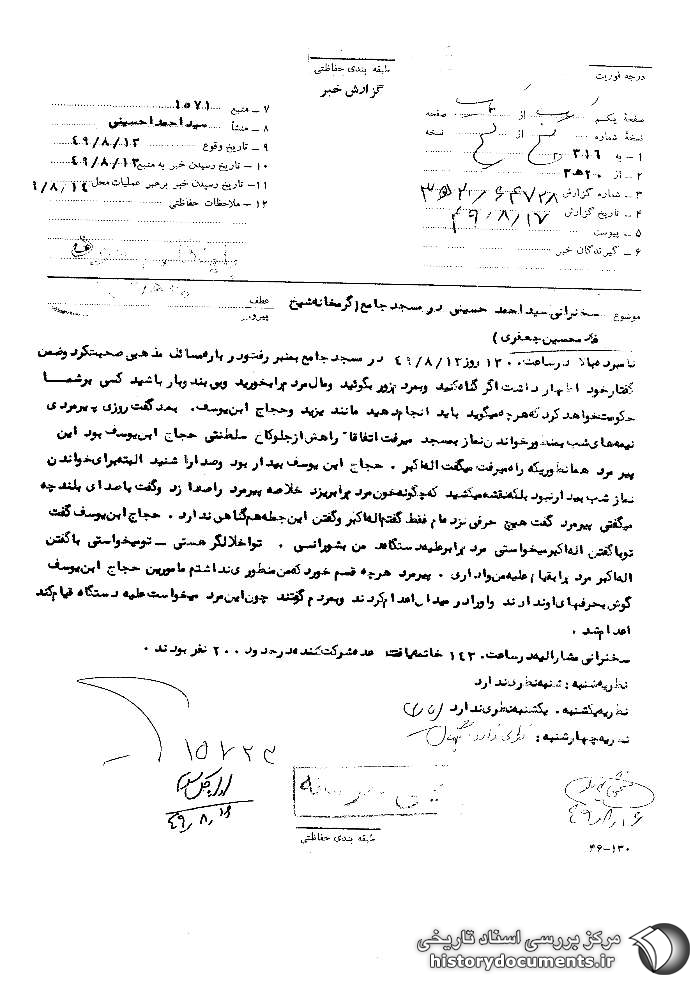 طبقه بندی حفاظتی
گزارش خبر
درجه فوریت
صفحه یکم از صفحه
نسخه شماره از نسخه
۱ – به ۳۱۶
۲ – از ۲۰ ه ۳
۳ – شماره گزارش
۴ – تاریخ گزارش ۴۹/۸/۱۷
۵ – پیوست
۶ – گیرندگان خبر
۷ – منبع ۱۵۷۱
۸ – منشأ سید احمد احسینی
۹ – تاریخ وقوع ۴۹/۸/۱۳
۱۰ – تاریخ رسیدن خبر به منبع ۴۹/۸/۱۳
۱۱ – تاریخ رسیدن خبر برهبر عملیات محل ۹/۸/۱۴
۱۲ – ملاحظات حفاظتی
موضوع سخنرانی سید احمد حسینی در مسجد جامع (گرمخانه شیخ
محمحسین جعفری)
عطف
پیرو
نامبرده بالا در ساعت ۱۳۰۰ روز ۴۹/۸/۱۳ در مسجد جامع بمنبر رفت و درباره مسائل مذهبی صحبت کرد و ضمن
گفتار خود اظهار داشت اگر گناه کنید و بمردم زور بگوئید و مال مردم را بخورید و بی بند و بار باشید کسی بر شما
حکومت خواهد کرد که هرچه میگوید باید انجام دهید مانند یزید و حجاج ابن یوسف . بعد گفت روزی پیرمردی
نیمه های شب بمنظور خواندن نماز بمسجد میرفت اتفاقا" راهش از جلو کاخ سلطنتی حجاج ابن یوسف بود این
پیر مرد همانطوریکه راه میرفت میگفت اله اکبر . حجاج ابن یوسف بیدار بود و صدا را شنید البته برای خواندن
نماز شب بیدار نبود بلکه نقشه میکشید که چگونه خون مردم را بریزد خلاصه پیرمرد را صدا زد و گفت با صدای بلند چه
میگفتی پیرمرد گفت هیچ حرفی نزده ام فقط گفتم اله اکبر و گفتن این جمله هم گناهی ندارد . حجاج ابن یوسف گفت
تو با گفتن اله اکبر میخواستی مردم را بر علیه دستگاه من بشورانی . تو اخلالگر هستی – تو میخواستی با گفتن
اله اکبر مردم را بقیام علیه من واداری . پیرمرد هرچه قسم خورد که من منظوری نداشتم مامورین حجاج ابن یوسف
گوش بحرفهای او ندادند و او را در میدان اعدام کردند و بمردم گفتند چون این مرد میخواست علیه دستگاه قیام کند
اعدام شد .
سخنرانی مشارالیه در ساعت ۱۴۳۰ خاتمه یافت عده شرکت کننده در حدود ۲۰۰ نفر بودند .
نظریه شنبه : شنبه نظری ندارد
نظریه یکشنبه . یکشنبه نظری ندارد
نظریه چهارشنبه :
۱۵۷۲۳
۴۹/۸/۱۶
طبقه بندی حفاظتی
۴۶-۱۳۰
مرکز بررسی اسناد تاریخی
historydocuments.ir